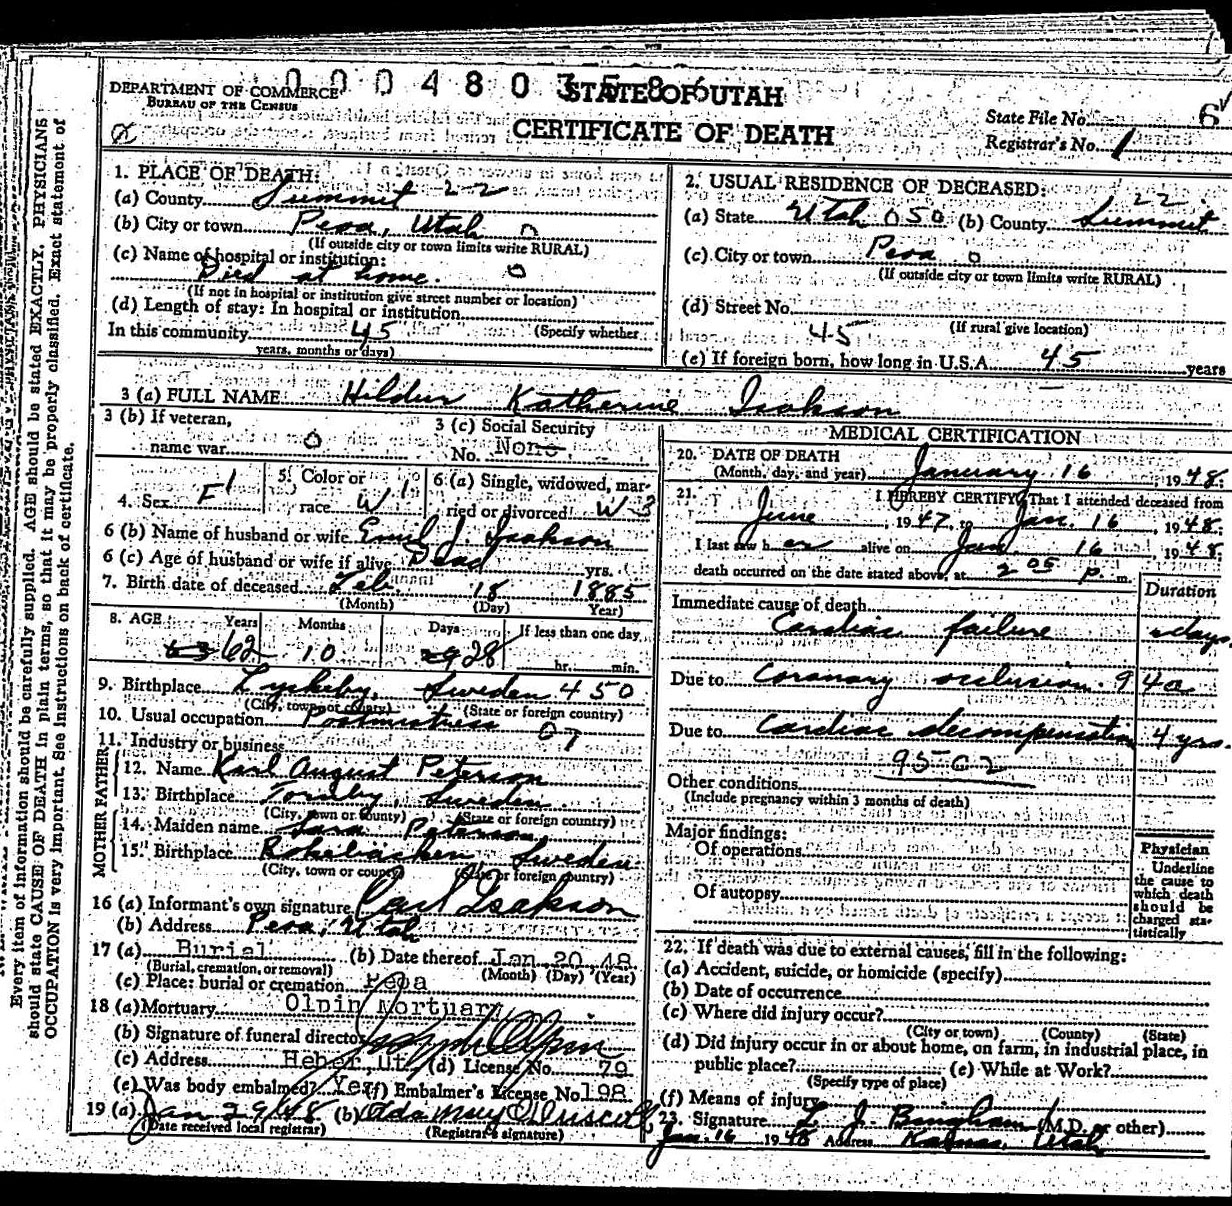 0 0 0 4 8 0 3 5 8 6
DEPARTMENT OF COMMERCE
BUREAU OF THE CENSUS
STATE OF UTAH
CERTIFICATE OF DEATH
State File No. 6
Registrar's No. 1
Every item of information should be carefully supplied. AGE should be stated EXACTLY. PHYSICIANS
should state CAUSE OF DEATH in plain terms, so that it may be properly classified. Exact statement of
OCCUPATION is very important. See instructions on back of certificate.
1. PLACE OF DEATH:
(a) County Summit 22
(b) City or town Peoa, Utah 0
(If outside city or town limits write RURAL)
(c) Name of hospital or institution:
Died at home. 0
(If not in hospital or institution give street number or location)
(d) Length of stay: In hospital or institution
In this community 45 (Specify whether
years, months or days)
2. USUAL RESIDENCE OF DECEASED:
(a) State Utah 050 (b) County Summit 22
(c) City or town Peoa 0
(If outside city or town limits write RURAL)
(d) Street No.
45 (If rural give location)
(e) If foreign born, how long in U.S.A. 45 years
3 (a) FULL NAME Hildur Katherine Isakson
3 (b) If veteran,
name war 0
3 (c) Social Security
No. None
4. Sex F 1
5. Color or
race W 1
6 (a) Single, widowed, mar-
ried or divorced W 3
6 (b) Name of husband or wife Emil J. Isakson
6 (c) Age of husband or wife if alive Dead yrs.
7. Birth date of deceased Feb. 18 1885
(Month) (Day) Year)
8. AGE Years Months Days If less than one day
63 62 10 29 28 hr. min.
9. Birthplace Lyckeby, Sweden 450
(City, town or county) (State or foreign country)
10. Usual occupation Postmistress
11. Industry or business 07
FATHER
12. Name Karl August Peterson
13. Birthplace Tornby, Sweden
(City, town or county) (State or foreign country)
MOTHER
14. Maiden name Sara Peterson
15. Birthplace Sweden
(City, town or county) (State or foreign country)
16 (a) Informant's own signature Carl Isakson
(b) Address Peoa, Utah
17 (a) Burial (b) Date thereof Jan 20 48
(Burial, cremation, or removal) (Month) (Day) (Year)
(c) Place: burial or cremation Peoa
18 (a) Mortuary Olpin Mortuary
(b) Signature of funeral director
(c) Address Heber, Ut. (d) License No. 79
(e) Was body embalmed? Yes (f) Embalmer's License No. 198
19 (a) Jan 29 48 (b) Ada Mary O'Driscoll
(Date received local registrar) (Registrar's signature)
MEDICAL CERTIFICATION
20. DATE OF DEATH
(Month, day, and year) January 16 1948
21. I HEREBY CERTIFY, That I attended deceased from
June, 1947, to Jan. 16, 1948.
I last saw her alive on Jan 16, 1948
death occurred on the date stated above, at 2 05 p. m.
Duration
Immediate cause of death
Cardiac failure days
Due to Coronary occlusion. 94a
Due to Cardiac decompensation 4 yrs.
9502
Other conditions
(Include pregnancy within 3 months of death)
Major findings:
Of operations
Of autopsy
Physician
Underline
the cause to
which death
should be
charged sta-
tistically
22. If death was due to external causes, fill in the following:
(a) Accident, suicide, or homicide (specify)
(b) Date of occurrence
(c) Where did injury occur?
(City or town) (County) (State)
(d) Did injury occur in or about home, on farm, in industrial place, in
public place? (e) While at Work?
(Specify type of place)
(f) Means of injury
23. Signature L. J. Bingham (M.D. or other)
Jan. 16 1948 Address Kamas, Utah